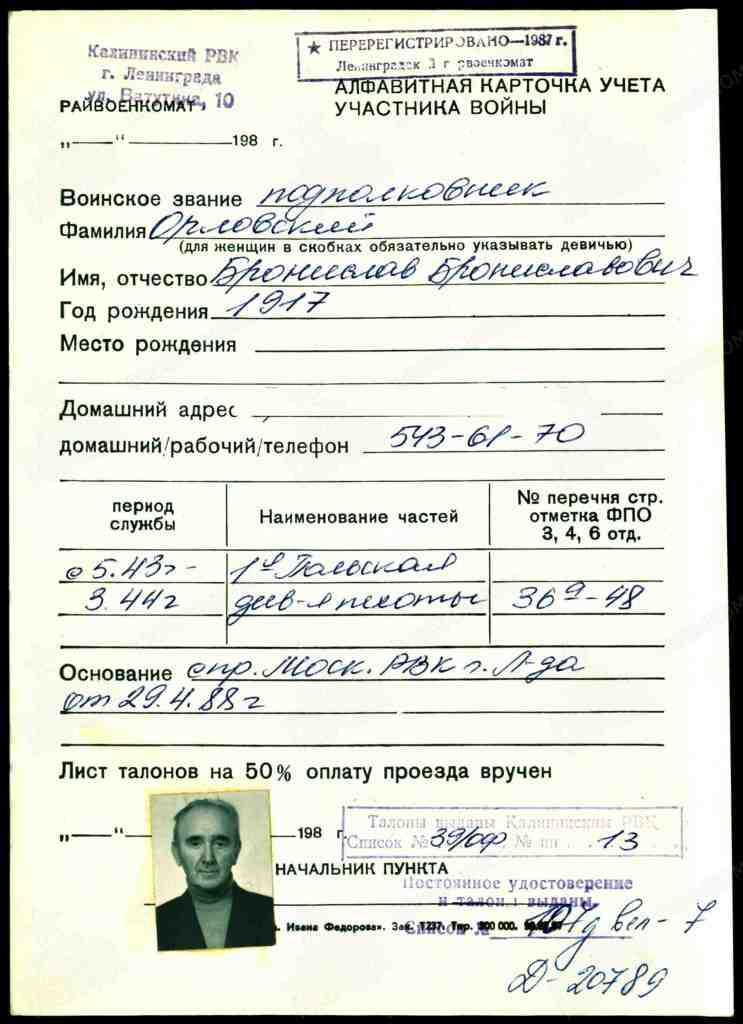 Калининский РВК
г. Ленинграда
ул. Ватутина, 10
★ ПЕРЕРЕГИСТРИРОВАНО—1987 г.
РАЙВОЕНКОМАТ
АЛФАВИТНАЯ КАРТОЧКА УЧЕТА
УЧАСТНИКА ВОЙНЫ
„ “ 198 г.
Воинское звание подполковник
Фамилия Орловский
(для женщин в скобках обязательно указывать девичью)
Имя, отчество Бронислав Брониславович
Год рождения 1917
Место рождения
Домашний адрес
домашний/рабочий/телефон 543-61-70
период службы Наименование частей № перечня стр. отметка ФПО 3, 4, 6 отд.
с 5.43г- 1я Польская
3.44г див-я пехоты 36а-48
Основание спр. Моск. РВК г. Л-да
от 29.4.88г
Лист талонов на 50% оплату проезда вручен
„ “ 198 г.
Талоны выданы Калининским РВК
Список № 39/оф. № пп 13
НАЧАЛЬНИК ПУНКТА
Постоянное удостоверение
и талоны выданы
Ивана Федорова». Зак. 7237. Тир. 300 000.
Список №
Д-20789